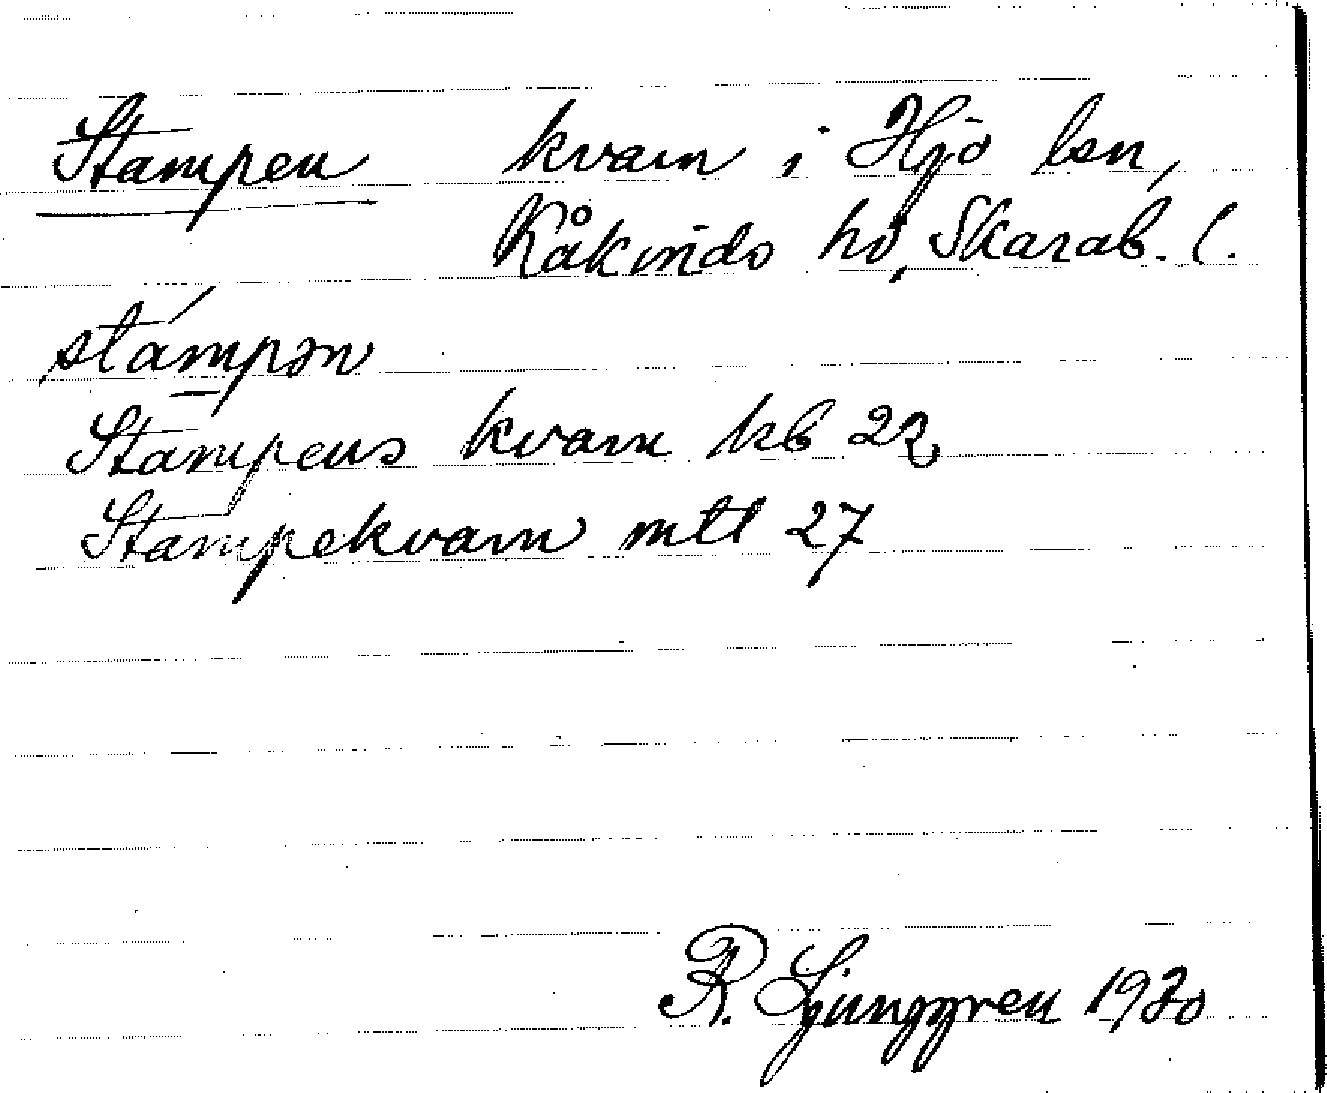 Stampen kvarn i Hjo lsn,
Kåkinds hd, Skarab. l.
stámpən
Stampens kvarn kb 22
Stampekvarn mtl 27
R. Ljunggren 1930